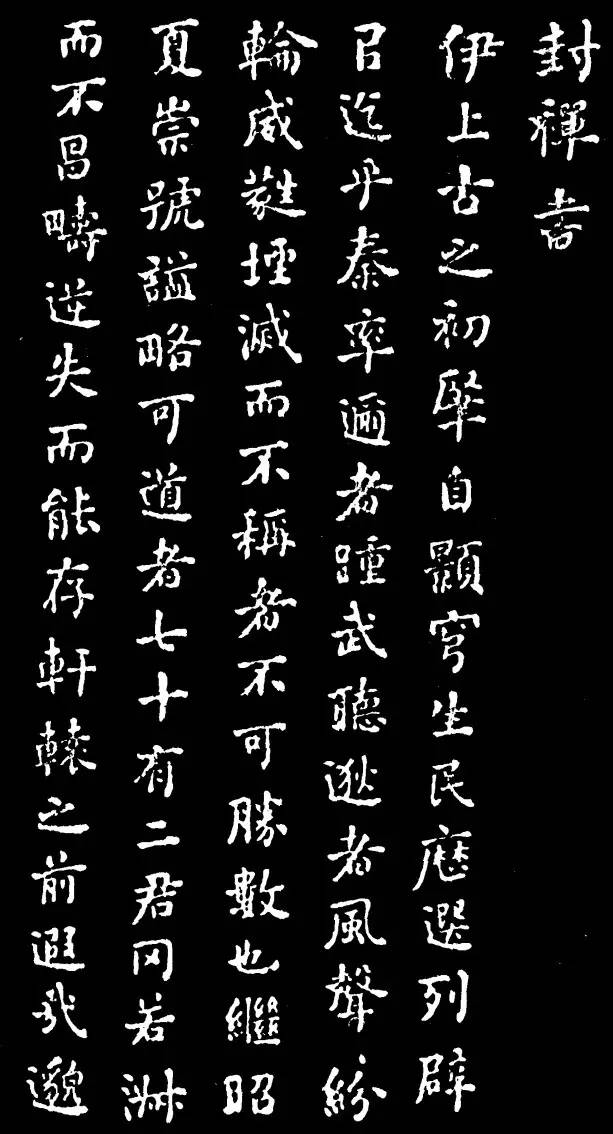 封禪書
伊上古之初肇自顥穹生民歷選列辟
㠯迄乎秦率邇者踵武聽逖者風聲紛
輪威蕤堙滅而不稱者不可勝數也繼昭
夏崇號謚略可道者七十有二君罔若淋
而不昌疇逆失而能存軒轅之前遐哉邈